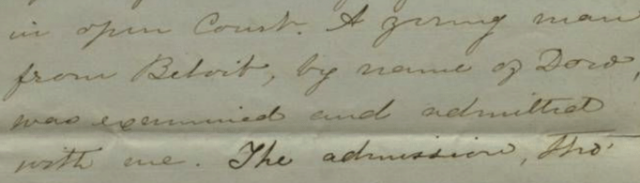 in open Court. A young man
from Beloit, by name of Dow,
was examined and admitted
with me. The admission, tho'